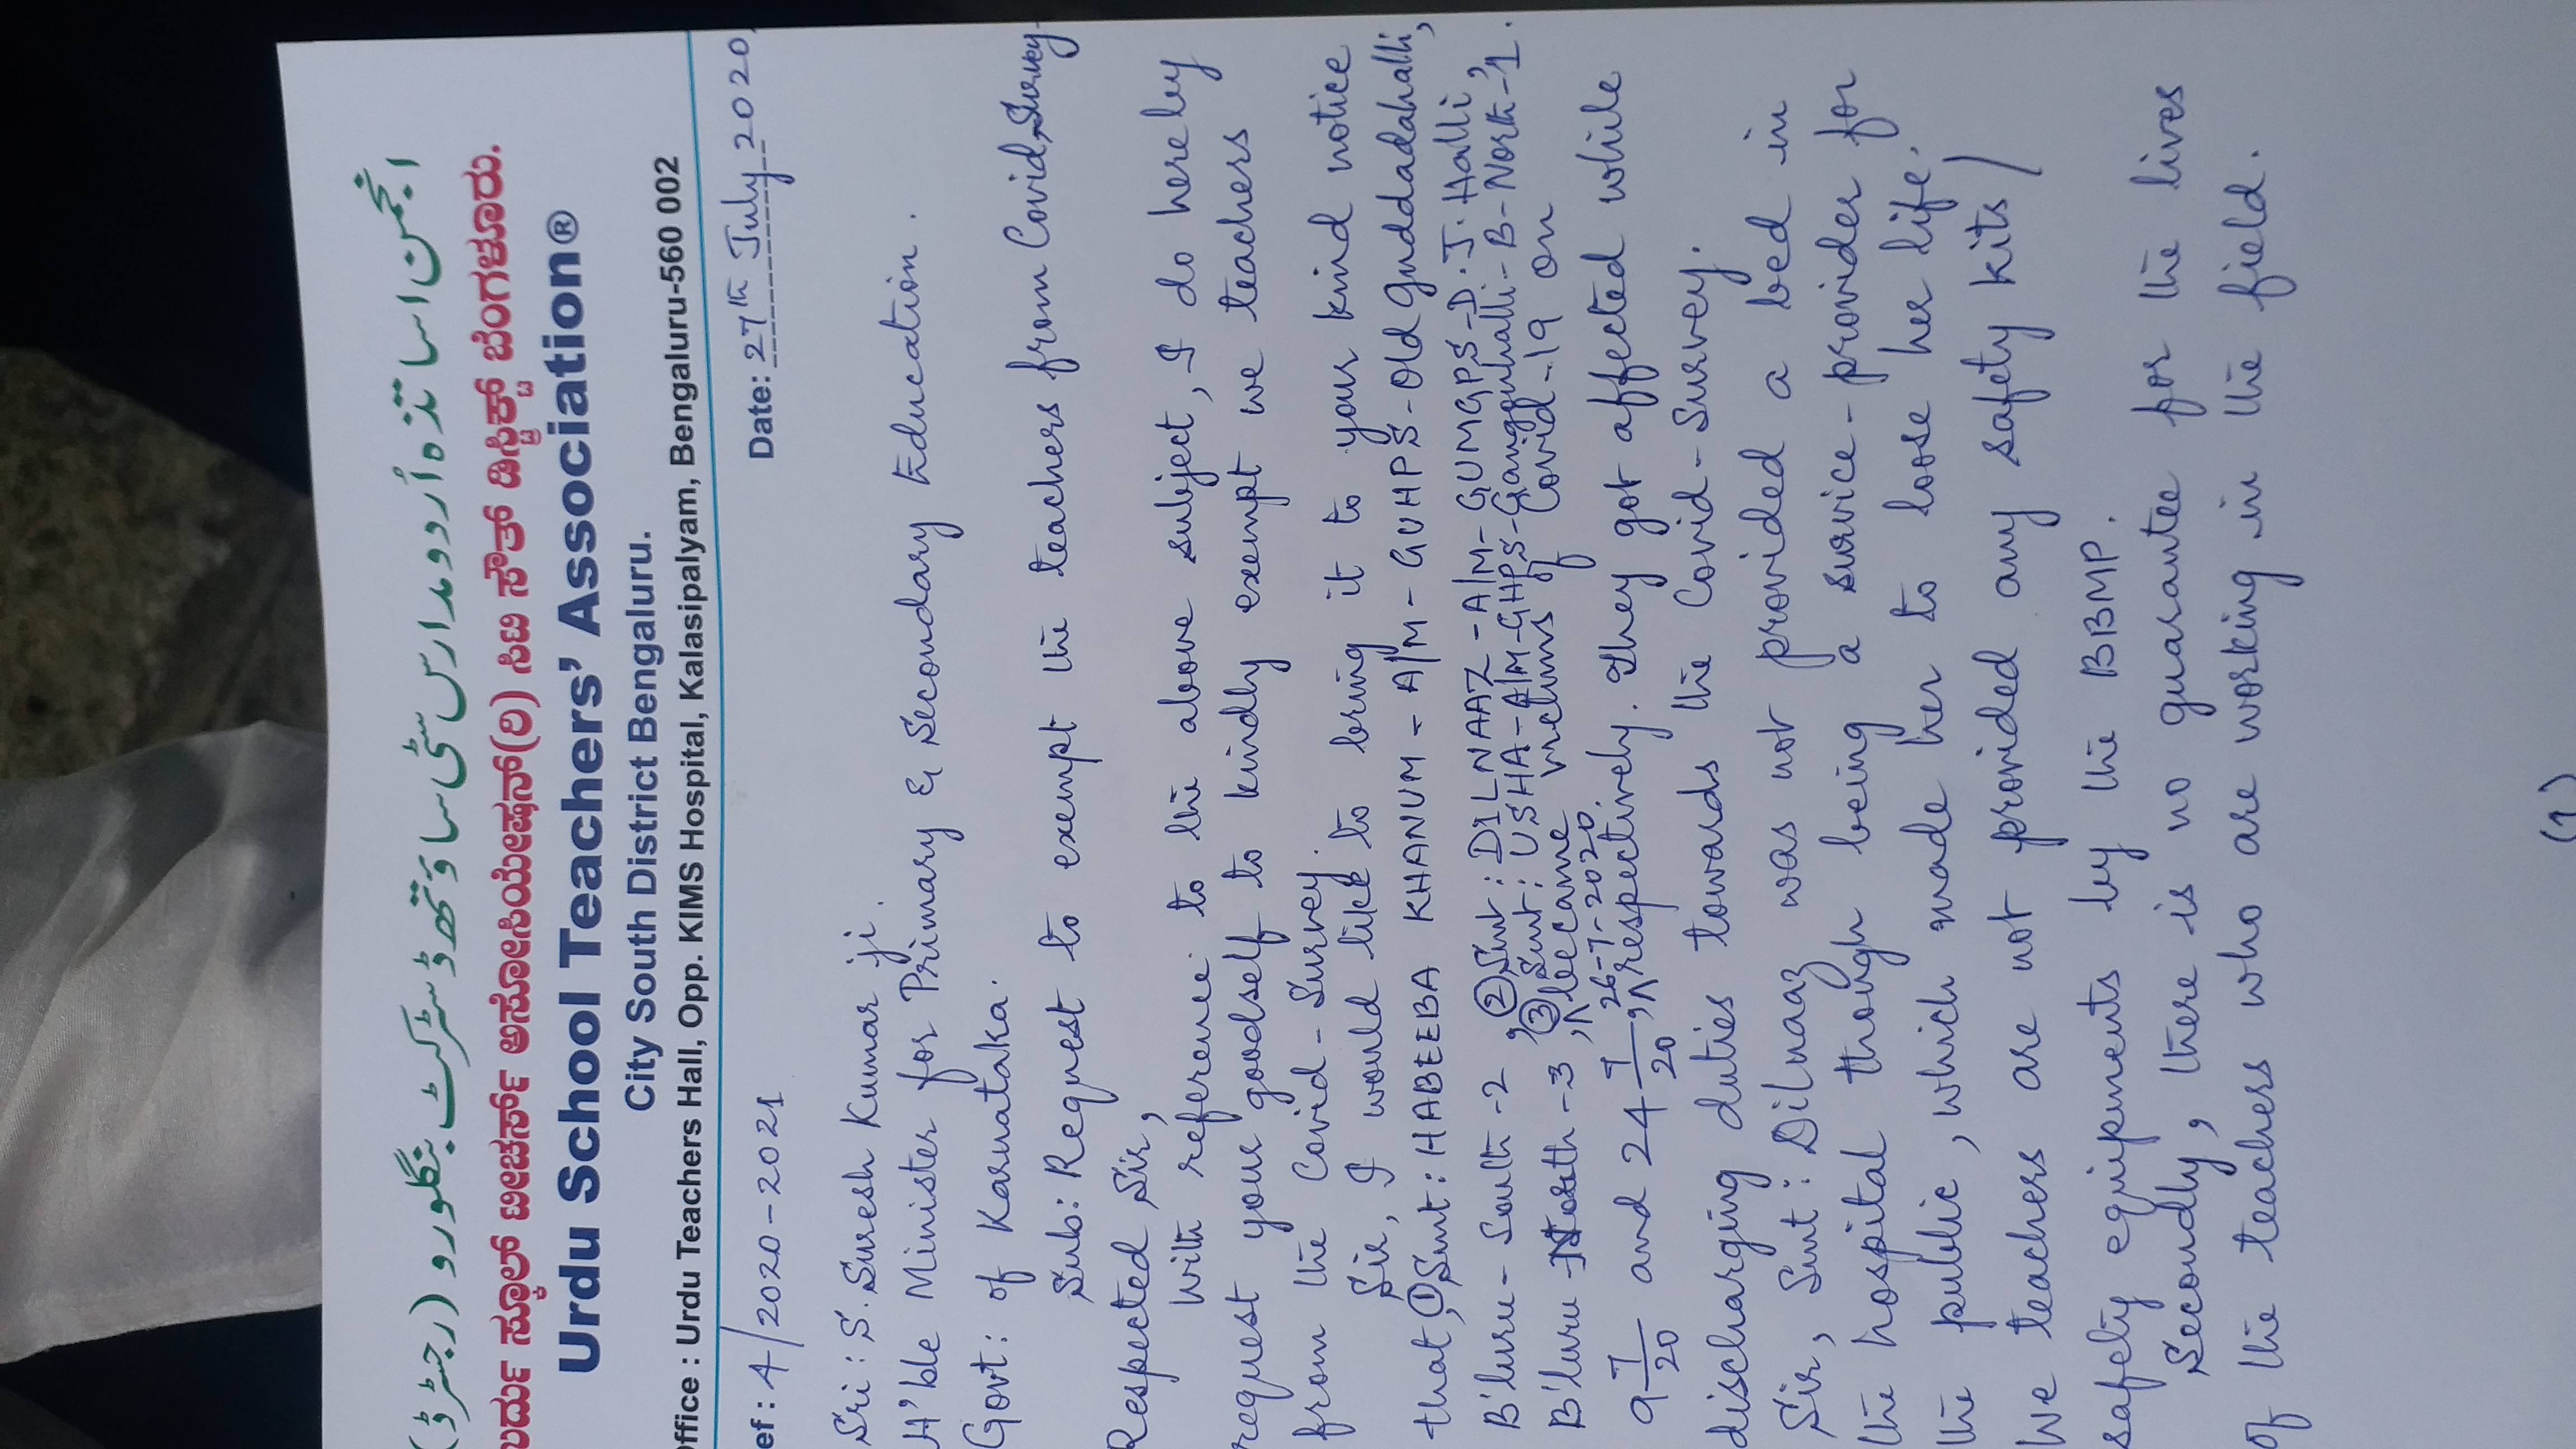 انجمن اساتذہ اُردو مدارس سٹی ساؤتھ ڈسٹرکٹ بنگلورو (رجسٹرڈ)
ಉರ್ದು ಸ್ಕೂಲ್ ಟೀಚರ್ಸ್ ಅಸೋಸಿಯೇಷನ್(ರಿ) ಸಿಟಿ ಸೌತ್ ಡಿಸ್ಟ್ರಿಕ್ಟ್ ಬೆಂಗಳೂರು.
Urdu School Teachers' Association®
City South District Bengaluru.
Office : Urdu Teachers Hall, Opp. KIMS Hospital, Kalasipalyam, Bengaluru-560 002
ef : 4/2020-2021 Date: 27th July 2020
Sri : S. Suresh Kumar ji.
H'ble Minister for Primary & Secondary Education.
Govt: of Karnataka.
Sub: Request to exempt the teachers from Covid-Survey
Respected Sir,
With reference to the above subject, I do hereby
request your goodself to kindly exempt we teachers
from the Covid-Survey.
Sir, I would like to bring it to your kind notice
that, ① Smt: HABEEBA KHANUM - A/M - GUHPS - Old Guddadahalli,
B'luru - South - 2, ② Smt: DILNAAZ - A/M - GUMGPS - D. J. Halli,
③ Smt: USHA - A/M - GHPS - Gangonhalli - B - North - 1.
B'luru - North - 3, ^ became victims of Covid-19 on
26-7-2020.
9 7/20 and 24 7/20, ^ respectively. They got affected while
discharging duties towards the Covid-Survey.
Sir, Smt: Dilnaaz was not provided a bed in
the hospital though being a survice-provider for
the public, which made her to loose her life.
We teachers are not provided any safety kits/
safety equipments by the BBMP.
Secondly, there is no guarantee for the lives
of the teachers who are working in the field.
(1)